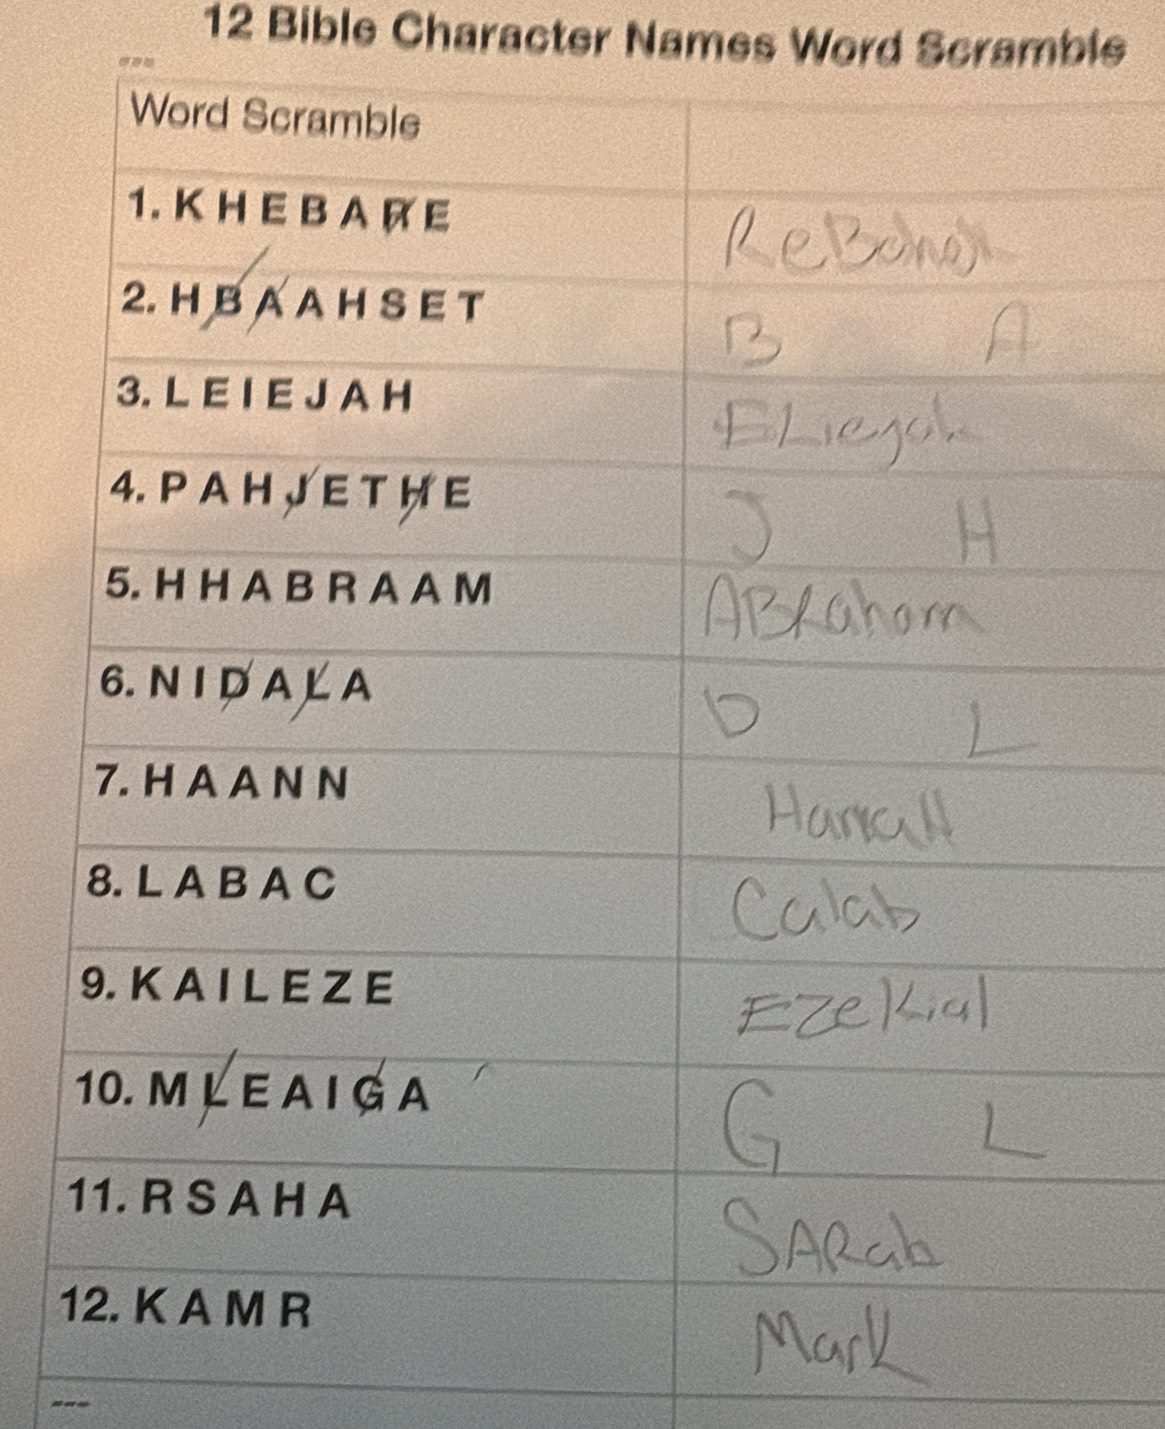 12 Bible Character Names Word Scramble
---
Word Scramble
1. K H E B A R E
2. H B A A H S E T
B A
3. L E I E J A H
ELieyah
4. P A H J E T H E
J H
5. H H A B R A A M
ABRaham
6. N I D A L A
D L
7. H A A N N
HannaH
8. L A B A C
Calab
9. K A I L E Z E
EZeKial
10. M L E A I G A
G L
11. R S A H A
SARah
12. K A M R
Mark
---